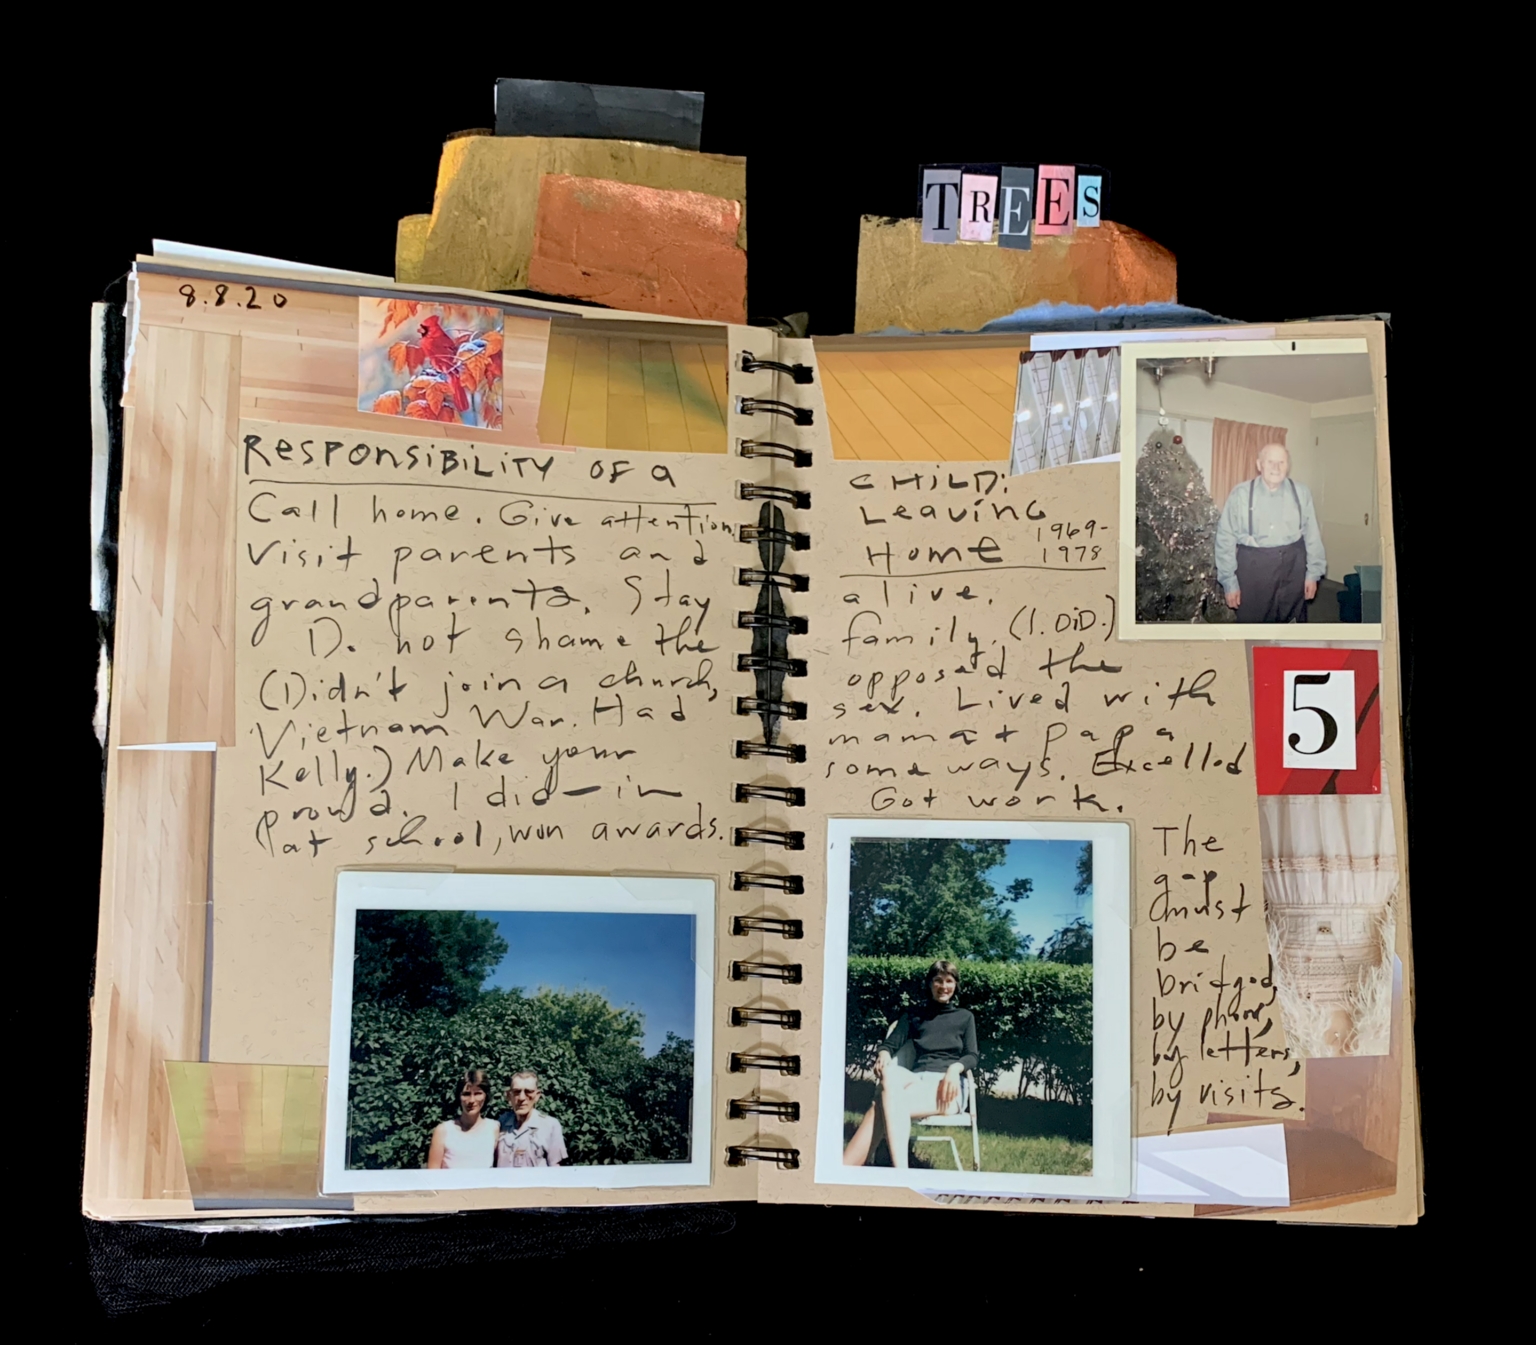 TREES
8.8.20
ResponsiBiLiTY of a
Call home. Give attention
Visit parents and
grandparents. Stay
D. not shame the
(Didn't join a church,
Vietnam War. Had
Kelly.) Make your
proud. I did—in
at school, won awards.
CHiLD:
Leaving
Home 1969-
1978
alive.
family. (I. DiD.)
opposed the
sex. Lived with
mama + papa
some ways. Excelled
Got work.
5
The
gap
must
be
bridged,
by phone,
by letters,
by visits.